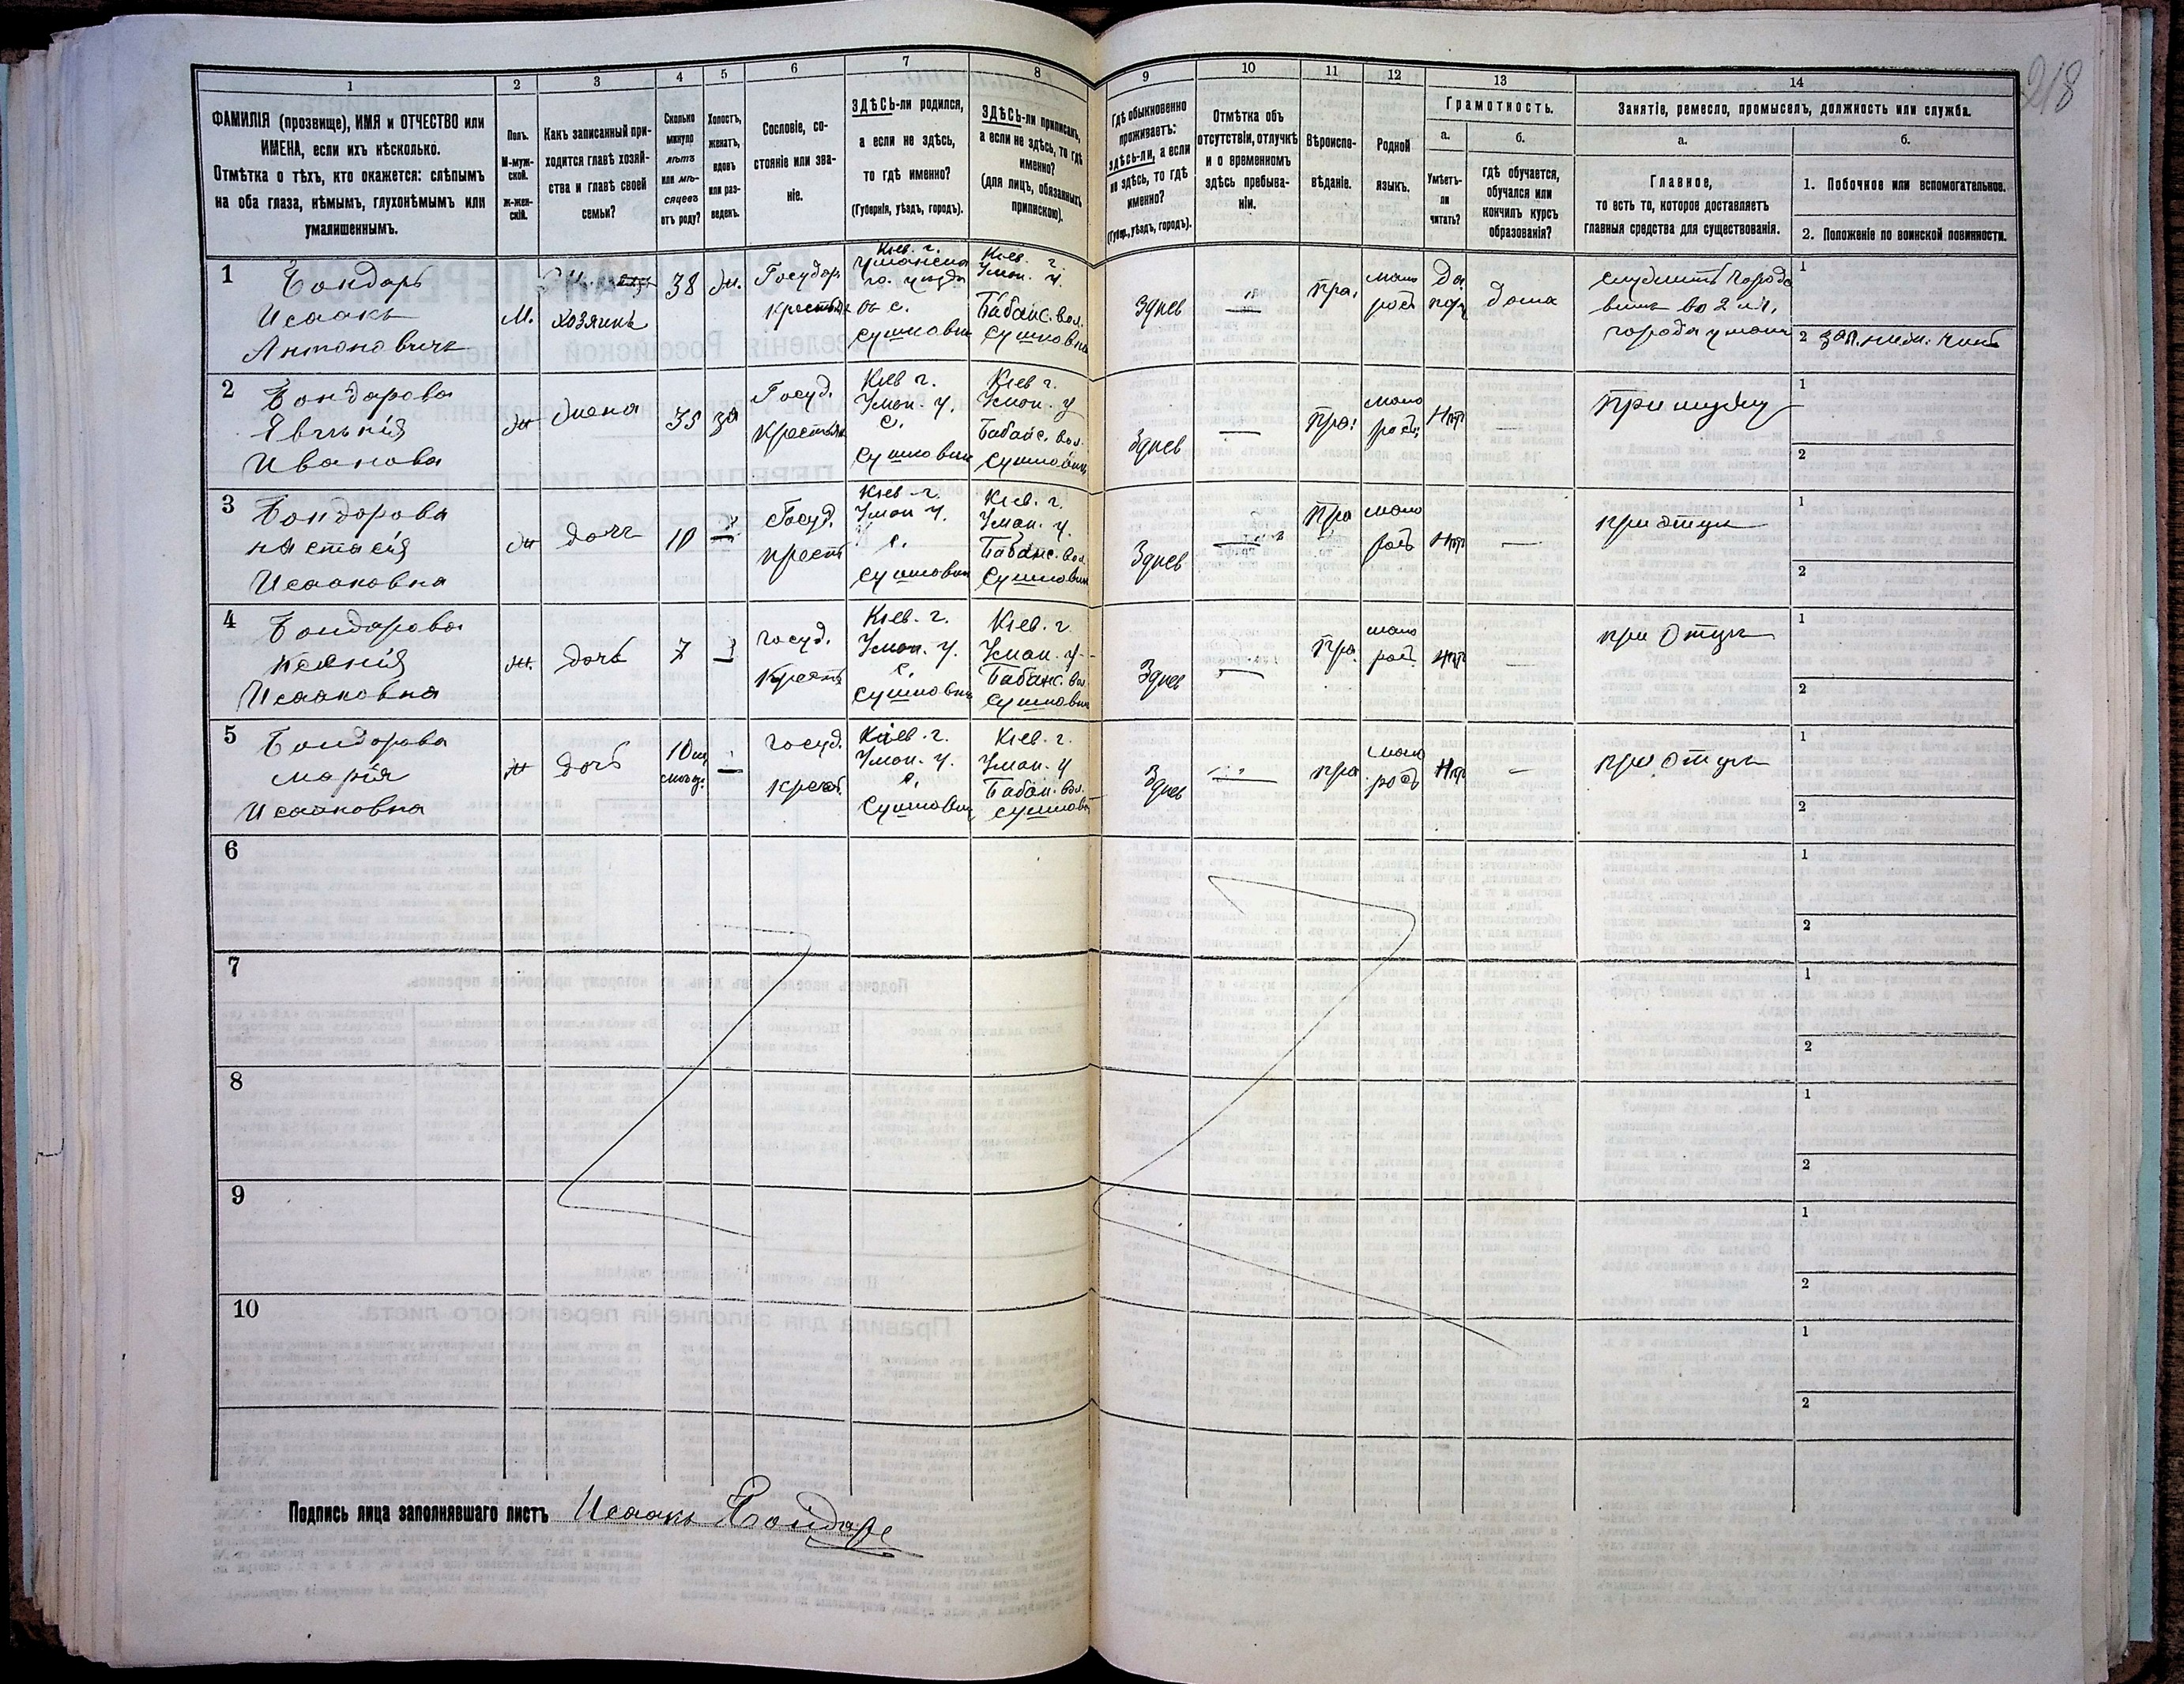 218
1 2 3 4 5 6 7 8 9 10 11 12 13 14
ФАМИЛІЯ (прозвище), ИМЯ и ОТЧЕСТВО или
ИМЕНА, если ихъ нѣсколько.
Отмѣтка о тѣхъ, кто окажется: слѣпымъ
на оба глаза, нѣмымъ, глухонѣмымъ или
умалишеннымъ.
Полъ.
М-муж-
ской.
ж-жен-
скій.
Какъ записанный при-
ходится главѣ хозяй-
ства и главѣ своей
семьи?
Сколько
минуло
лѣтъ
или мѣ-
сяцевъ
отъ роду?
Холостъ,
женатъ,
вдовъ
или раз-
веденъ.
Сословіе, со-
стояніе или зва-
ніе.
ЗДѢСЬ-ли родился,
а если не здѣсь,
то гдѣ именно?
(Губернія, уѣздъ, городъ).
ЗДѢСЬ-ли приписанъ,
а если не здѣсь, то гдѣ
именно?
(для лицъ, обязанныхъ
припискою).
Гдѣ обыкновенно
проживаетъ:
здѣсь-ли, а если
не здѣсь, то гдѣ
именно?
(Губер., уѣздъ, городъ).
Отмѣтка объ
отсутствіи, отлучкѣ
и о временномъ
здѣсь пребыва-
ніи.
Вѣроиспо-
вѣданіе.
Родной
языкъ.
Грамотность.
а.
Умѣетъ-
ли
читать?
б.
гдѣ обучается,
обучался или
кончилъ курсъ
образованія?
Занятіе, ремесло, промыселъ, должность или служба.
а.
Главное,
то есть то, которое доставляетъ
главныя средства для существованія.
б.
1. Побочное или вспомогательное.
2. Положеніе по воинской повинности.
1
Бондарь
Исаакъ
Антоновичъ
М.
хозяинъ
38
ж.
Государ
крестьян
Кіев. г.
Уманска
го. уѣзда
с.
Сушковки
Кіев. г.
Уман. у.
Бабанс. вол.
Сушковка
Здѣсь
—
пра.
мало
рос
Да
дома
служитъ городо
вымъ во 2 ч.
города умани
1
2 зап. ниж. чинъ
2
Бондарова
Явгенія
Иванова
ж
жена
35
за
Госуд.
Крестьян
Кіев г.
Уман. у.
с.
Сушковки
Кіев г.
Уман. у
Бабанс. вол.
Сушковки
Здѣсь
—
Пра.
мало
рос
Нѣт
—
При мужу
1
2
3
Бондарова
настасія
Исааковна
ж
дочь
10
—
Госуд.
крест
Кіев г.
Уман у.
с.
Сушковки
Кіев. г.
Уман. у.
Бабанс. вол.
Сушковки
Здѣсь
—
Пра
мало
рос
Нѣт
—
при отцу
1
2
4
Бондарова
Ксенія
Исааковна
ж.
дочь
7
—
Госуд.
Крест
Кіев. г.
Уман. у.
с.
Сушковки
Кіев. г.
Уман. у.
Бабанс. вол.
Сушковки
Здѣсь
—
Пра.
мало
рос
Нѣт
—
при отцу
1
2
5
Бондарова
Марія
Исааковна
ж
дочь
10
—
Госуд.
крест
Кіев. г.
Уман. у.
с.
Сушковки
Кіев. г.
Уман. у
Бабан. вол.
Сушков
Здѣсь
—
пра
мало
рос
Нѣт
—
при отцу
1
2
6
1
2
7
1
2
8
1
2
9
1
2
10
1
2
Подпись лица заполнявшаго листъ Исаакъ Бондарь